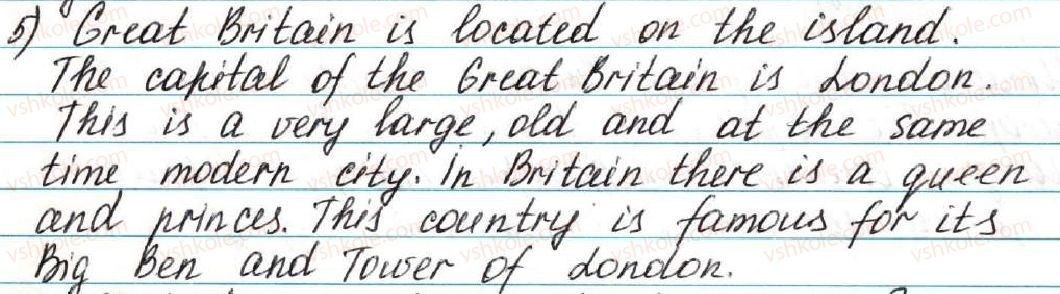 5) Great Britain is located on the island.
The capital of the Great Britain is London.
This is a very large, old and at the same
time modern city. In Britain there is a queen
and princes. This country is famous for its
Big Ben and Tower of London.